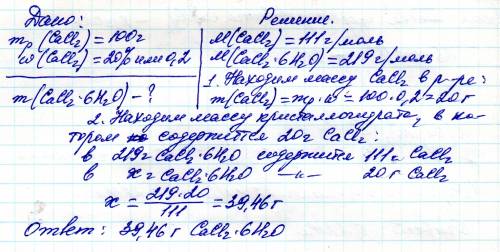 Дано:
Решение.
mр (CaCl₂) = 100г
ω (CaCl₂) = 20% или 0,2
m (CaCl₂·6H₂O) – ?
M(CaCl₂) = 111 г/моль
M(CaCl₂·6H₂O) = 219 г/моль
1. Находим массу CaCl₂ в р-ре:
m(CaCl₂) = mр·ω = 100·0,2 = 20г
2. Находим массу кристаллогидрата, в ко-
тором содержится 20г CaCl₂:
в 219г CaCl₂·6H₂O содержится 111г CaCl₂
в xг CaCl₂·6H₂O —"— 20г CaCl₂
x = 219·20 / 111 = 39,46г
Ответ: 39,46г CaCl₂·6H₂O